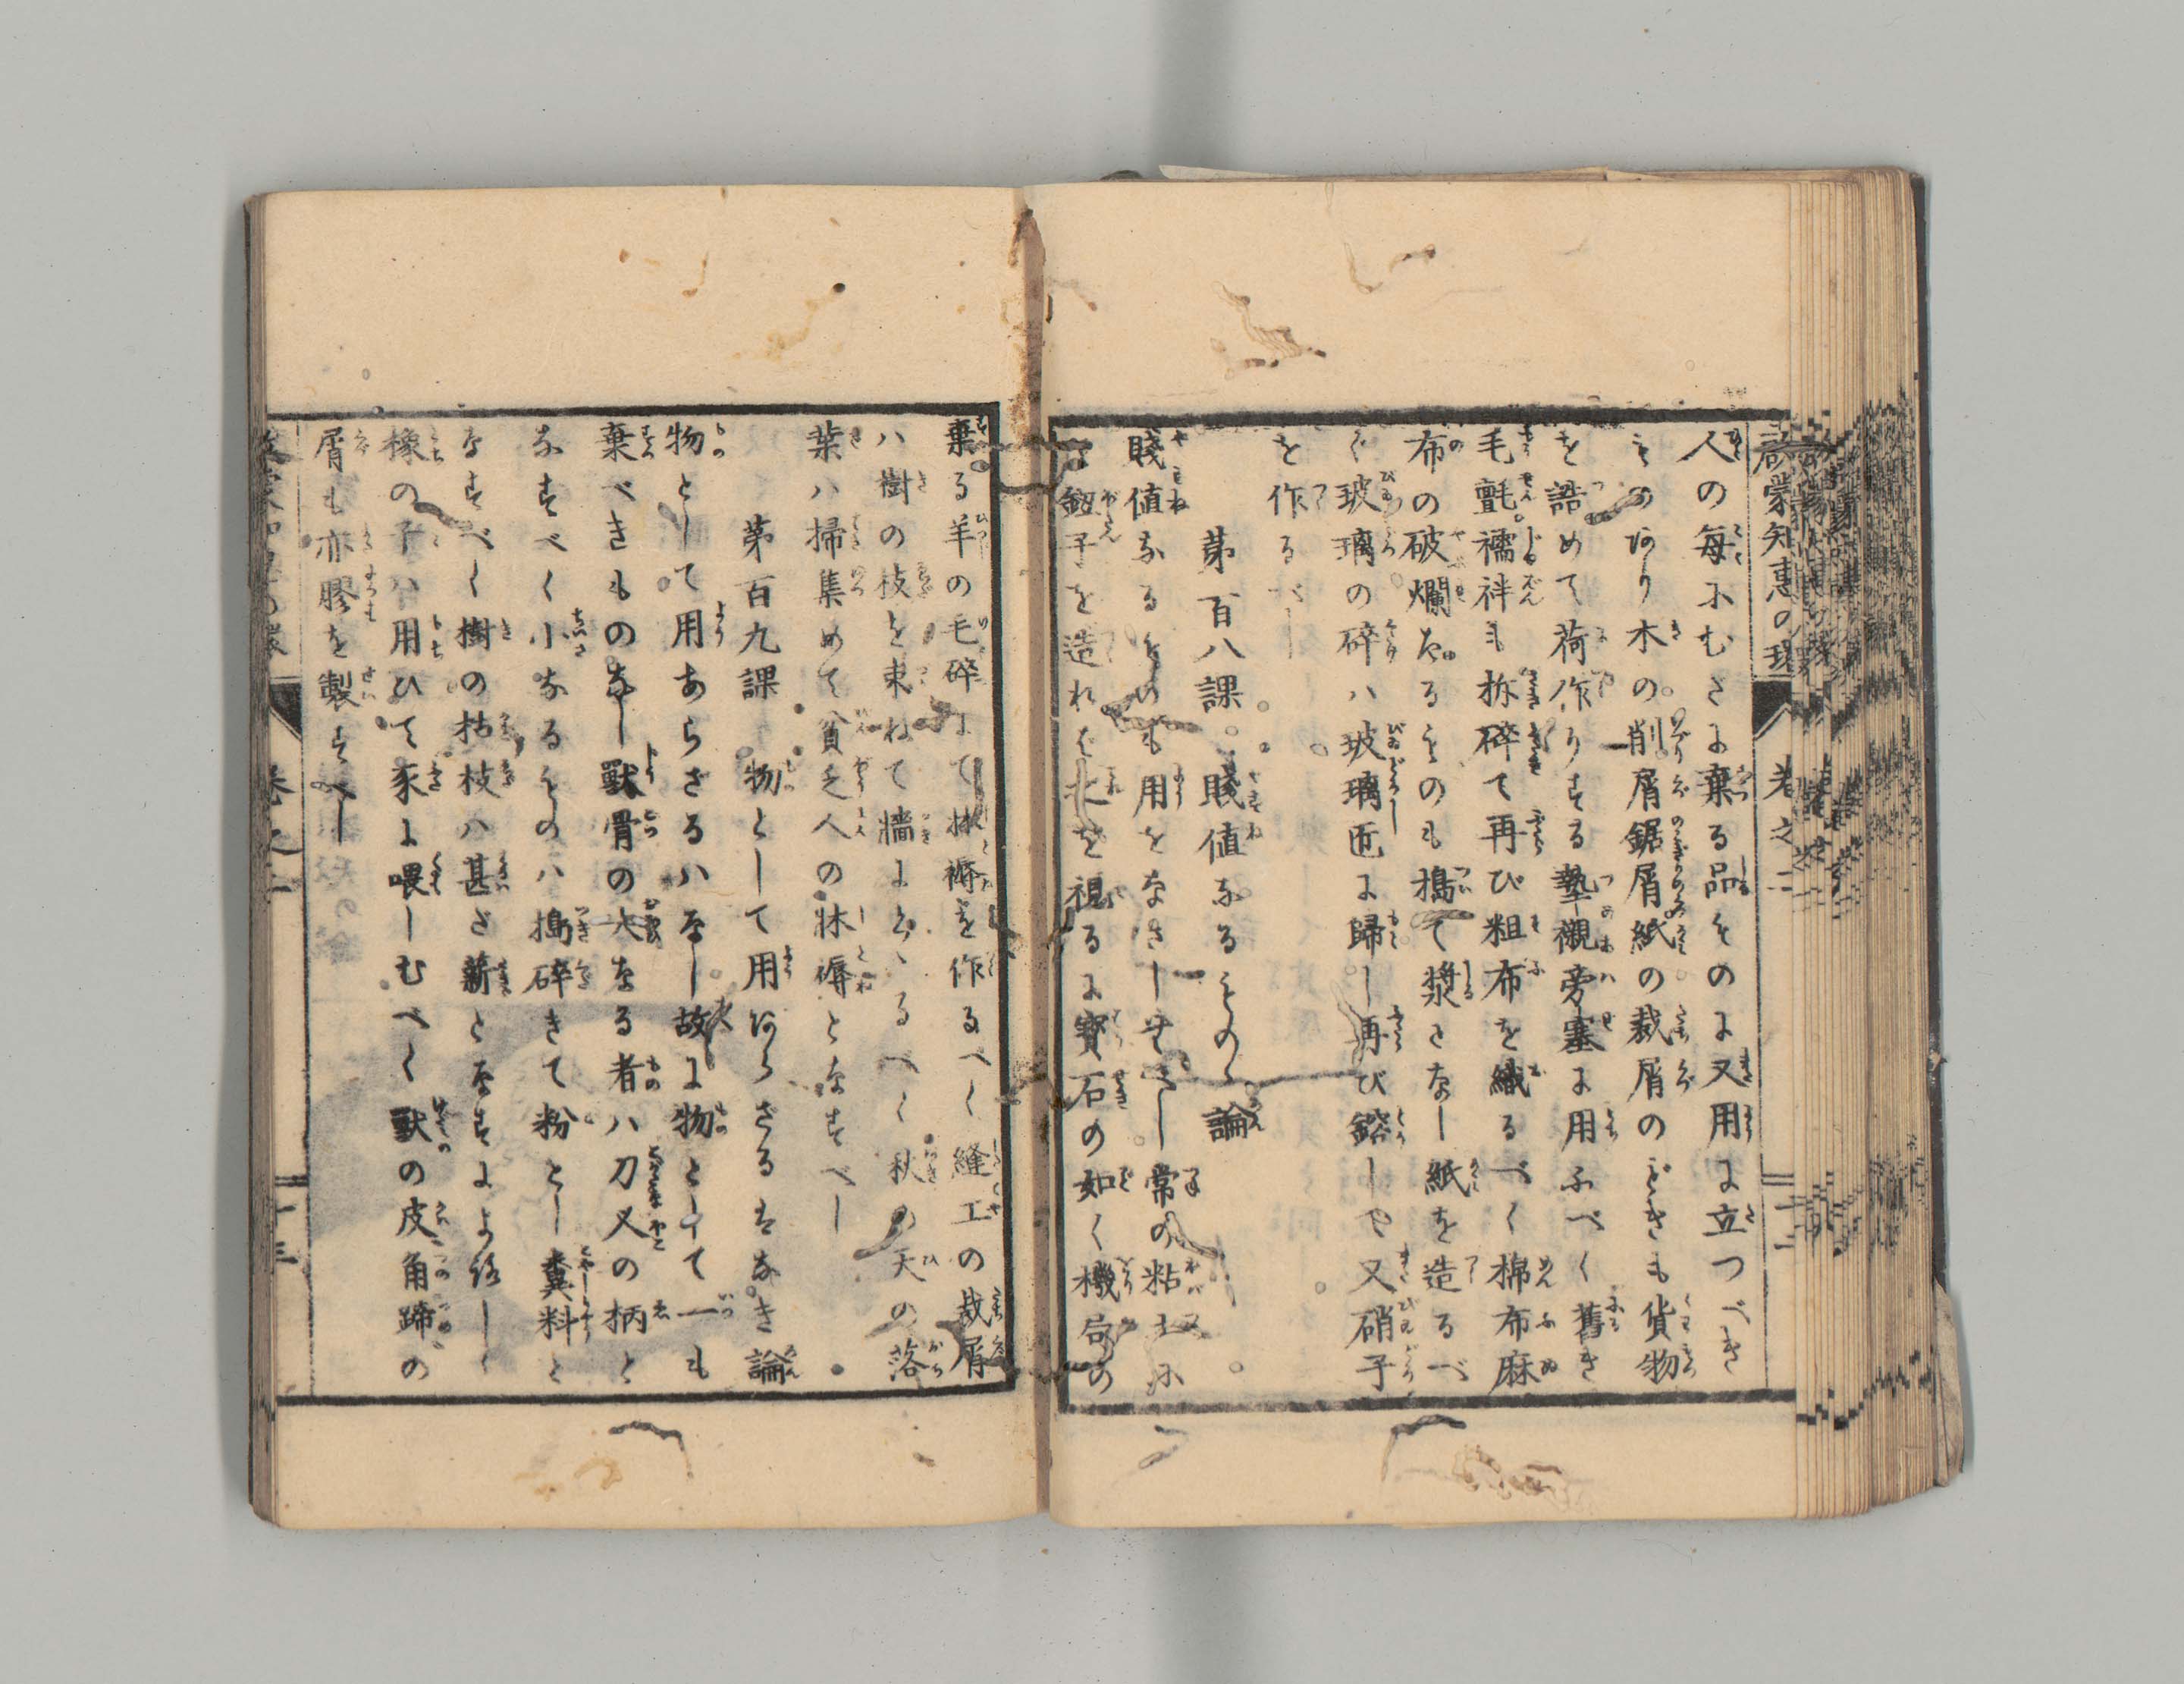 啓蒙知惠の環 卷之二 十二
人の毎にむざに棄る品ものに又用に立つべき
ものあり木の削屑鋸屑紙の裁屑のごときも貨物
を詰めて荷作りする墊襯旁塞に用ふべく舊き
毛氈襦袢も拆碎て再び粗布を織るべく棉布麻
布の破爛たるものも搗て漿となし紙を造るべ
く玻璃の碎ハ玻璃匠に歸し再び鎔しや又硝子
を作るべし
第百八課 賤値なるものゝ論
賤値なるものも用をなさしむべし常の粘土に
て鈕子を造れば北を視るに寳石の如く機局の
棄る羊の毛碎にて牀褥を作るべく縫工の裁屑
ハ樹の枝を束ねて墻によるべく秋の天の落
葉ハ掃集めて貧乏人の牀褥となすべし
第百九課 物として用あらざるはなき論
物として用あらざるハなし故に物として一も
棄べきものなし獸骨の大なる者ハ刀叉の柄と
なすべく小なるものハ搗碎きて粉とし糞料と
なすべく樹の枯枝ハ甚ざ薪となすによろしく
橡の子ハ用ひて豕に喂しむべく獸の皮角蹄の
屑も亦膠を製すべし